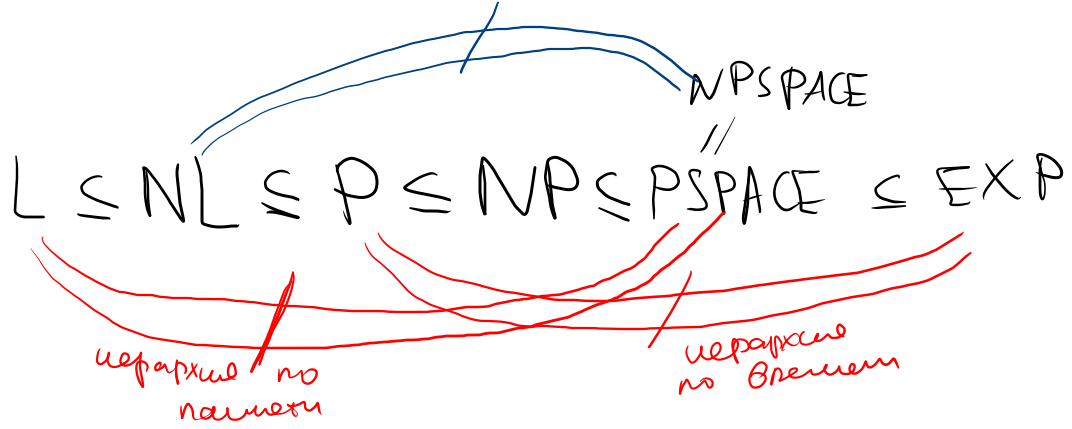 NPSPACE
=
L ⊆ NL ⊆ P ⊆ NP ⊆ PSPACE ⊆ EXP
иерархия по
памяти
иерархия
по времени